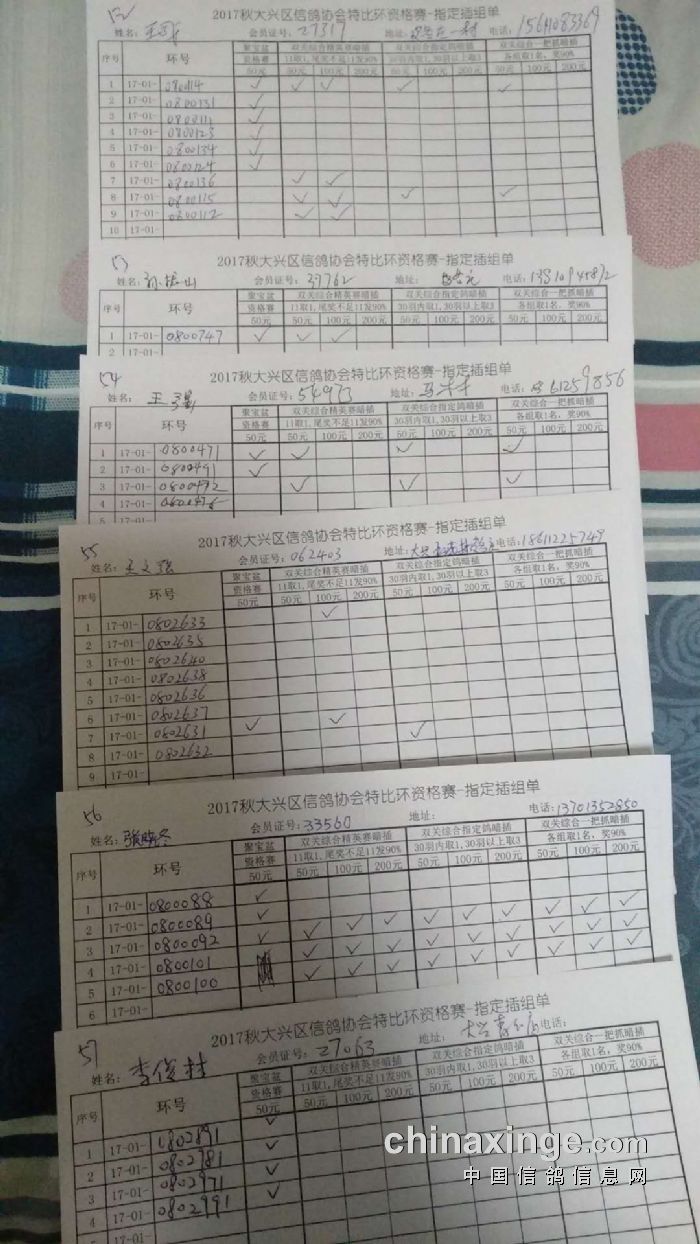 52
2017秋大兴区信鸽协会特比环资格赛-指定插组单
姓名: 会员证号: 27317 地址: 电话:
序号 环号 聚宝盆 双关综合精英赛暗插 双关综合指定鸽暗插 双关综合一把抓暗插
资格赛 11取1,尾奖不足11发90% 30羽内取1,30羽以上取3 各组取1名,奖90%
50元 50元 100元 200元 50元 100元 200元 50元 100元 200元
1 17-01- ✓ ✓ ✓ ✓ ✓
2 17-01- 0800131 ✓
3 17-01- 0800111 ✓
4 17-01- 0800123 ✓
5 17-01- 0800134 ✓
6 17-01- 0800124 ✓
7 17-01- 0800136 ✓ ✓
8 17-01- 0800115 ✓ ✓ ✓ ✓
9 17-01- 0800112 ✓ ✓
10 17-01-
53
2017秋大兴区信鸽协会特比环资格赛-指定插组单
姓名: 会员证号: 39762 地址: 电话:
序号 环号 聚宝盆 双关综合精英赛暗插 双关综合指定鸽暗插 双关综合一把抓暗插
资格赛 11取1,尾奖不足11发90% 30羽内取1,30羽以上取3 各组取1名,奖90%
50元 50元 100元 200元 50元 100元 200元 50元 100元 200元
1 17-01- 0800747 ✓ ✓ ✓
2 17-01-
54
2017秋大兴区信鸽协会特比环资格赛-指定插组单
姓名: 王 会员证号: 54973 地址: 电话:
序号 环号 聚宝盆 双关综合精英赛暗插 双关综合指定鸽暗插 双关综合一把抓暗插
资格赛 11取1,尾奖不足11发90% 30羽内取1,30羽以上取3 各组取1名,奖90%
50元 50元 100元 200元 50元 100元 200元 50元 100元 200元
1 17-01- 0800471 ✓ ✓ ✓ ✓
2 17-01- 0800491 ✓
3 17-01- 0800492 ✓ ✓ ✓
4 17-01-
55
2017秋大兴区信鸽协会特比环资格赛-指定插组单
姓名: 王文强 会员证号: 062403 地址: 大兴 电话: 18611225749
序号 环号 聚宝盆 双关综合精英赛暗插 双关综合指定鸽暗插 双关综合一把抓暗插
资格赛 11取1,尾奖不足11发90% 30羽内取1,30羽以上取3 各组取1名,奖90%
50元 50元 100元 200元 50元 100元 200元 50元 100元 200元
1 17-01- 0802633 ✓
2 17-01- 0802635
3 17-01- 0802640
4 17-01- 0802638
5 17-01- 0802636
6 17-01- 0802637
7 17-01- 0802631 ✓ ✓ ✓
8 17-01- 0802632
9 17-01-
56
2017秋大兴区信鸽协会特比环资格赛-指定插组单
姓名: 张晓冬 会员证号: 33560 地址: 电话: 13701352850
序号 环号 聚宝盆 双关综合精英赛暗插 双关综合指定鸽暗插 双关综合一把抓暗插
资格赛 11取1,尾奖不足11发90% 30羽内取1,30羽以上取3 各组取1名,奖90%
50元 50元 100元 200元 50元 100元 200元 50元 100元 200元
1 17-01- 0800088 ✓
2 17-01- 0800089 ✓ ✓ ✓ ✓ ✓ ✓ ✓ ✓ ✓ ✓
3 17-01- 0800092 ✓ ✓ ✓ ✓ ✓ ✓ ✓ ✓ ✓ ✓
4 17-01- 0800101 ✓ ✓ ✓ ✓ ✓ ✓ ✓ ✓ ✓
5 17-01- 0800100
6 17-01-
57
2017秋大兴区信鸽协会特比环资格赛-指定插组单
姓名: 李俊林 会员证号: 27063 地址: 大兴 电话:
序号 环号 聚宝盆 双关综合精英赛暗插 双关综合指定鸽暗插 双关综合一把抓暗插
资格赛 11取1,尾奖不足11发90% 30羽内取1,30羽以上取3 各组取1名,奖90%
50元 50元 100元 200元 50元 100元 200元 50元 100元 200元
1 17-01- 0802891 ✓
2 17-01- 0802981 ✓
3 17-01- 0802971 ✓
4 17-01- 0802991 ✓
chinaxinge.com
中国信鸽信息网